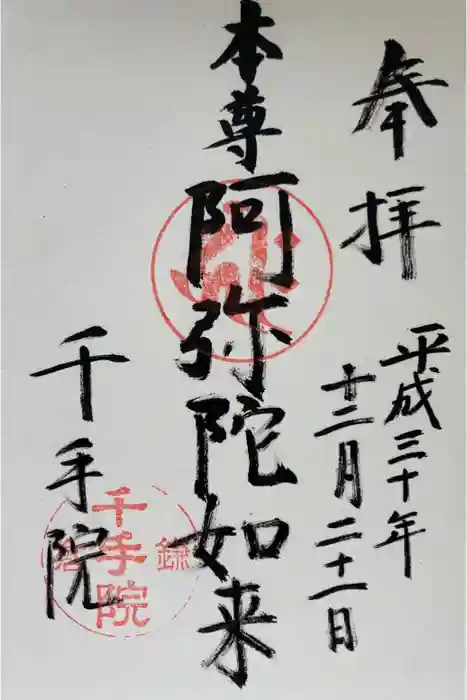 奉拝
平成三十年
十二月二十一日
本尊
阿弥陀如来
千手院
千手院
鎌